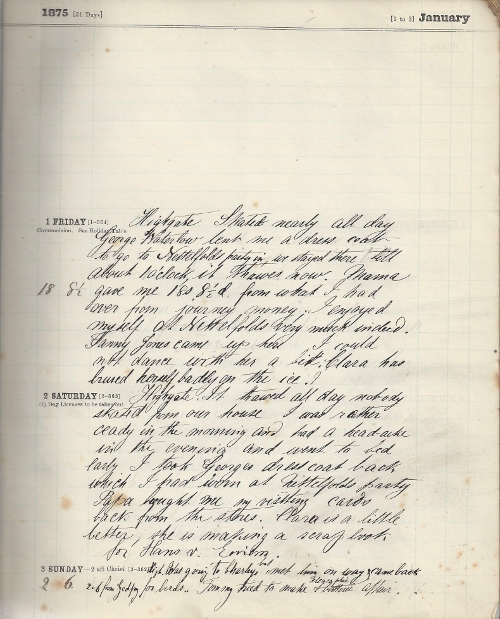 1875 [31 Days]
[1 to 3] January
1 FRIDAY [1-364]
Circumcision.
Highgate Skated nearly all day
George Waterlow lent me a dress coat
to go to Nettlefolds party in, we stayed there till
about 1 o'clock it thawes now. Mama
18 8½ gave me 18s 8½d. from what I had
over from journey money. I enjoyed
myself at Nettlefolds very much indeed.
Fanny Jones came up here I could
not dance with her a bit. Clara has
bruised herself badly on the ice.
2 SATURDAY [2-363]
Dog Licenses to be taken out
Highgate. It thawed all day nobody
skated from our house I was rather
in the morning and had a headache
in the evening and went to bed
early I took Georges dress coat back
which I had worn at Nettlefolds party
Papa bought me my visiting cards
back from the stores. Clara is a little
better, she is making a scrap book
for Hans v.
3 SUNDAY — 2 aft Christ [3-362]
High. Was going to but met him on way & came back
2 6 2-6 from for birds. Tommy tried to make affair.